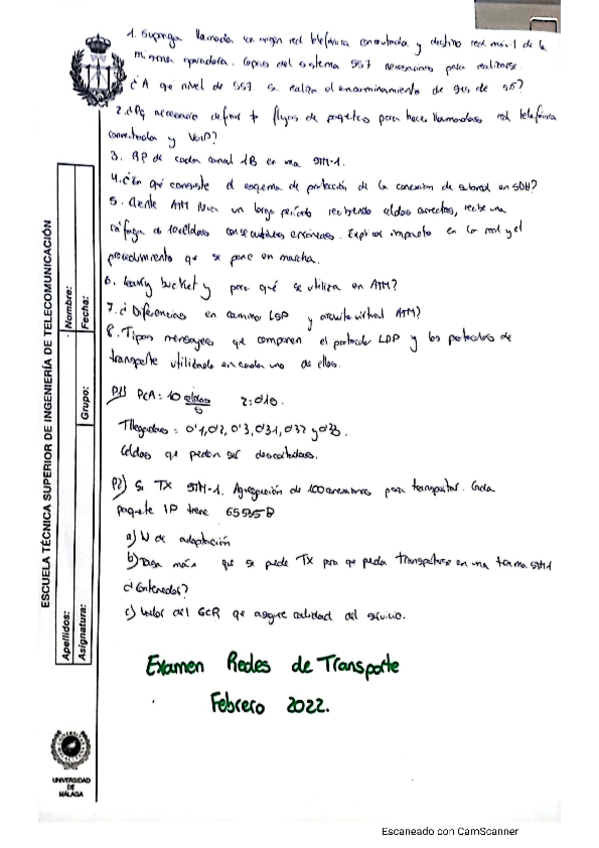 1. Suponga llamada con origen red telefónica conmutada y destino red móvil de la
misma operadora. Capas del sistema SS7 necesarias para realizarse.
¿A qué nivel de SS7 se realiza el encaminamiento de
2. ¿Pq necesario definir + flujos de paquetes para hacer llamadas red telefónica
conmutada y VoIP?
3. RP de cada canal 1B en una STM-1.
4. ¿En qué consiste el esquema de protección de la conexión de subred en SDH?
5. Cliente ATM lleva un largo periodo recibiendo celdas correctas, recibe una
ráfaga de celdas consecutivas erróneas. Explicar impacto en la red y el
procedimiento que se pone en marcha.
6. Leaky bucket y para qué se utiliza en ATM?
7. ¿Diferencias en camino LSP y circuito virtual ATM?
8. Tipos mensajes que componen el protocolo LDP y los protocolos de
transporte utilizado en cada uno de ellos.
P1) PCR = 10 celdas/s
Tllegadas = 0'1, 0'2, 0'3, 0'31, 0'32 y 0'33.
Celdas que pueden ser descartadas.
P2) Si TX STM-1. Agregación de 100 para transportar. Cada
paquete IP tiene 65535 B
a) N de adaptación
b) Tasa máx que se puede TX para que pueda transportarse en una trama STM1
¿Contenedor?
c) Valor del GCR que asegure calidad del servicio.
Examen Redes de Transporte
Febrero 2022.
ESCUELA TÉCNICA SUPERIOR DE INGENIERÍA DE TELECOMUNICACIÓN
Apellidos:
Nombre:
Asignatura:
Grupo:
Fecha:
UNIVERSIDAD
DE
MÁLAGA
Escaneado con CamScanner